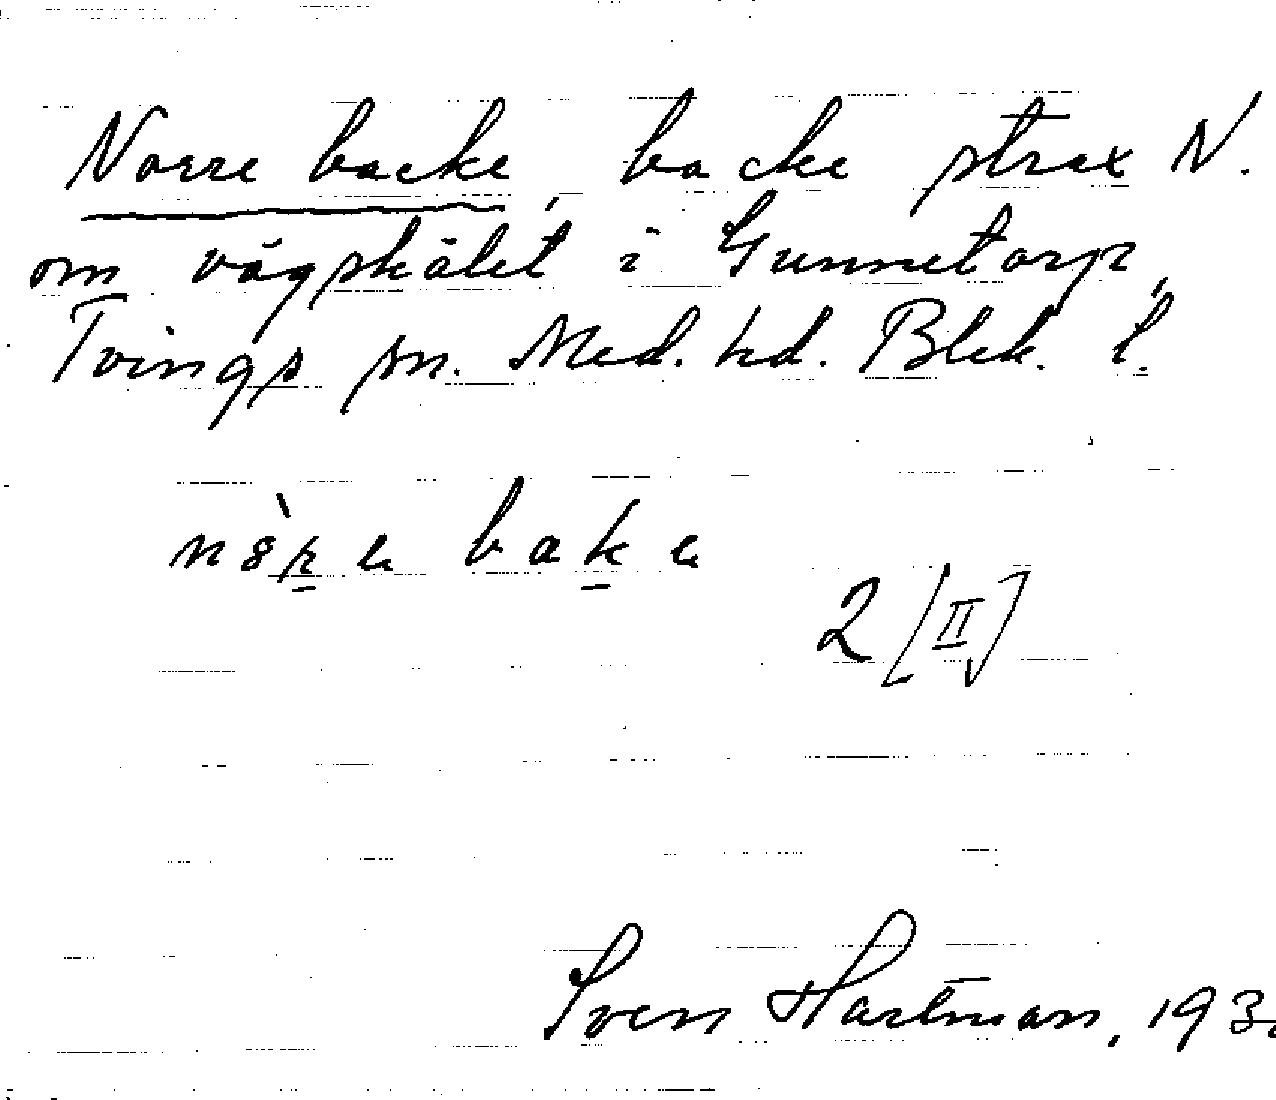 Norre backe, backe strax N.
om vägskälet i Gunnetorp,
Tvings sn. Med. hd. Blek. l.
bake
2 [II]
Sven Hartman,